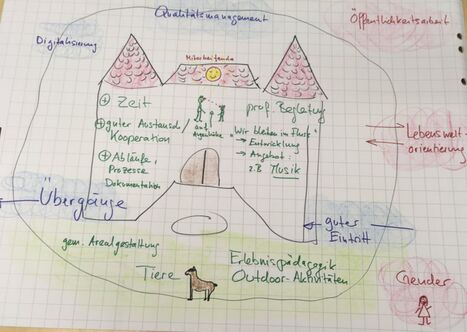 Qualitätsmanagement
Öffentlichkeitsarbeit
Digitalisierung
Mitarbeitende
+ Zeit
+ guter Austausch/
Kooperation
+ Abläufe,
Prozesse
Dokumentation
auf
Augenhöhe
prof. Begleitung
"Wir bleiben im Fluss"
→ Entwicklung
→ Angebot:
z.B. Musik
Lebenswelt-
orientierung
Übergänge
guter
Eintritt
gem. Arealgestaltung
Tiere
Erlebnispädagogik
Outdoor-Aktivitäten
Gender